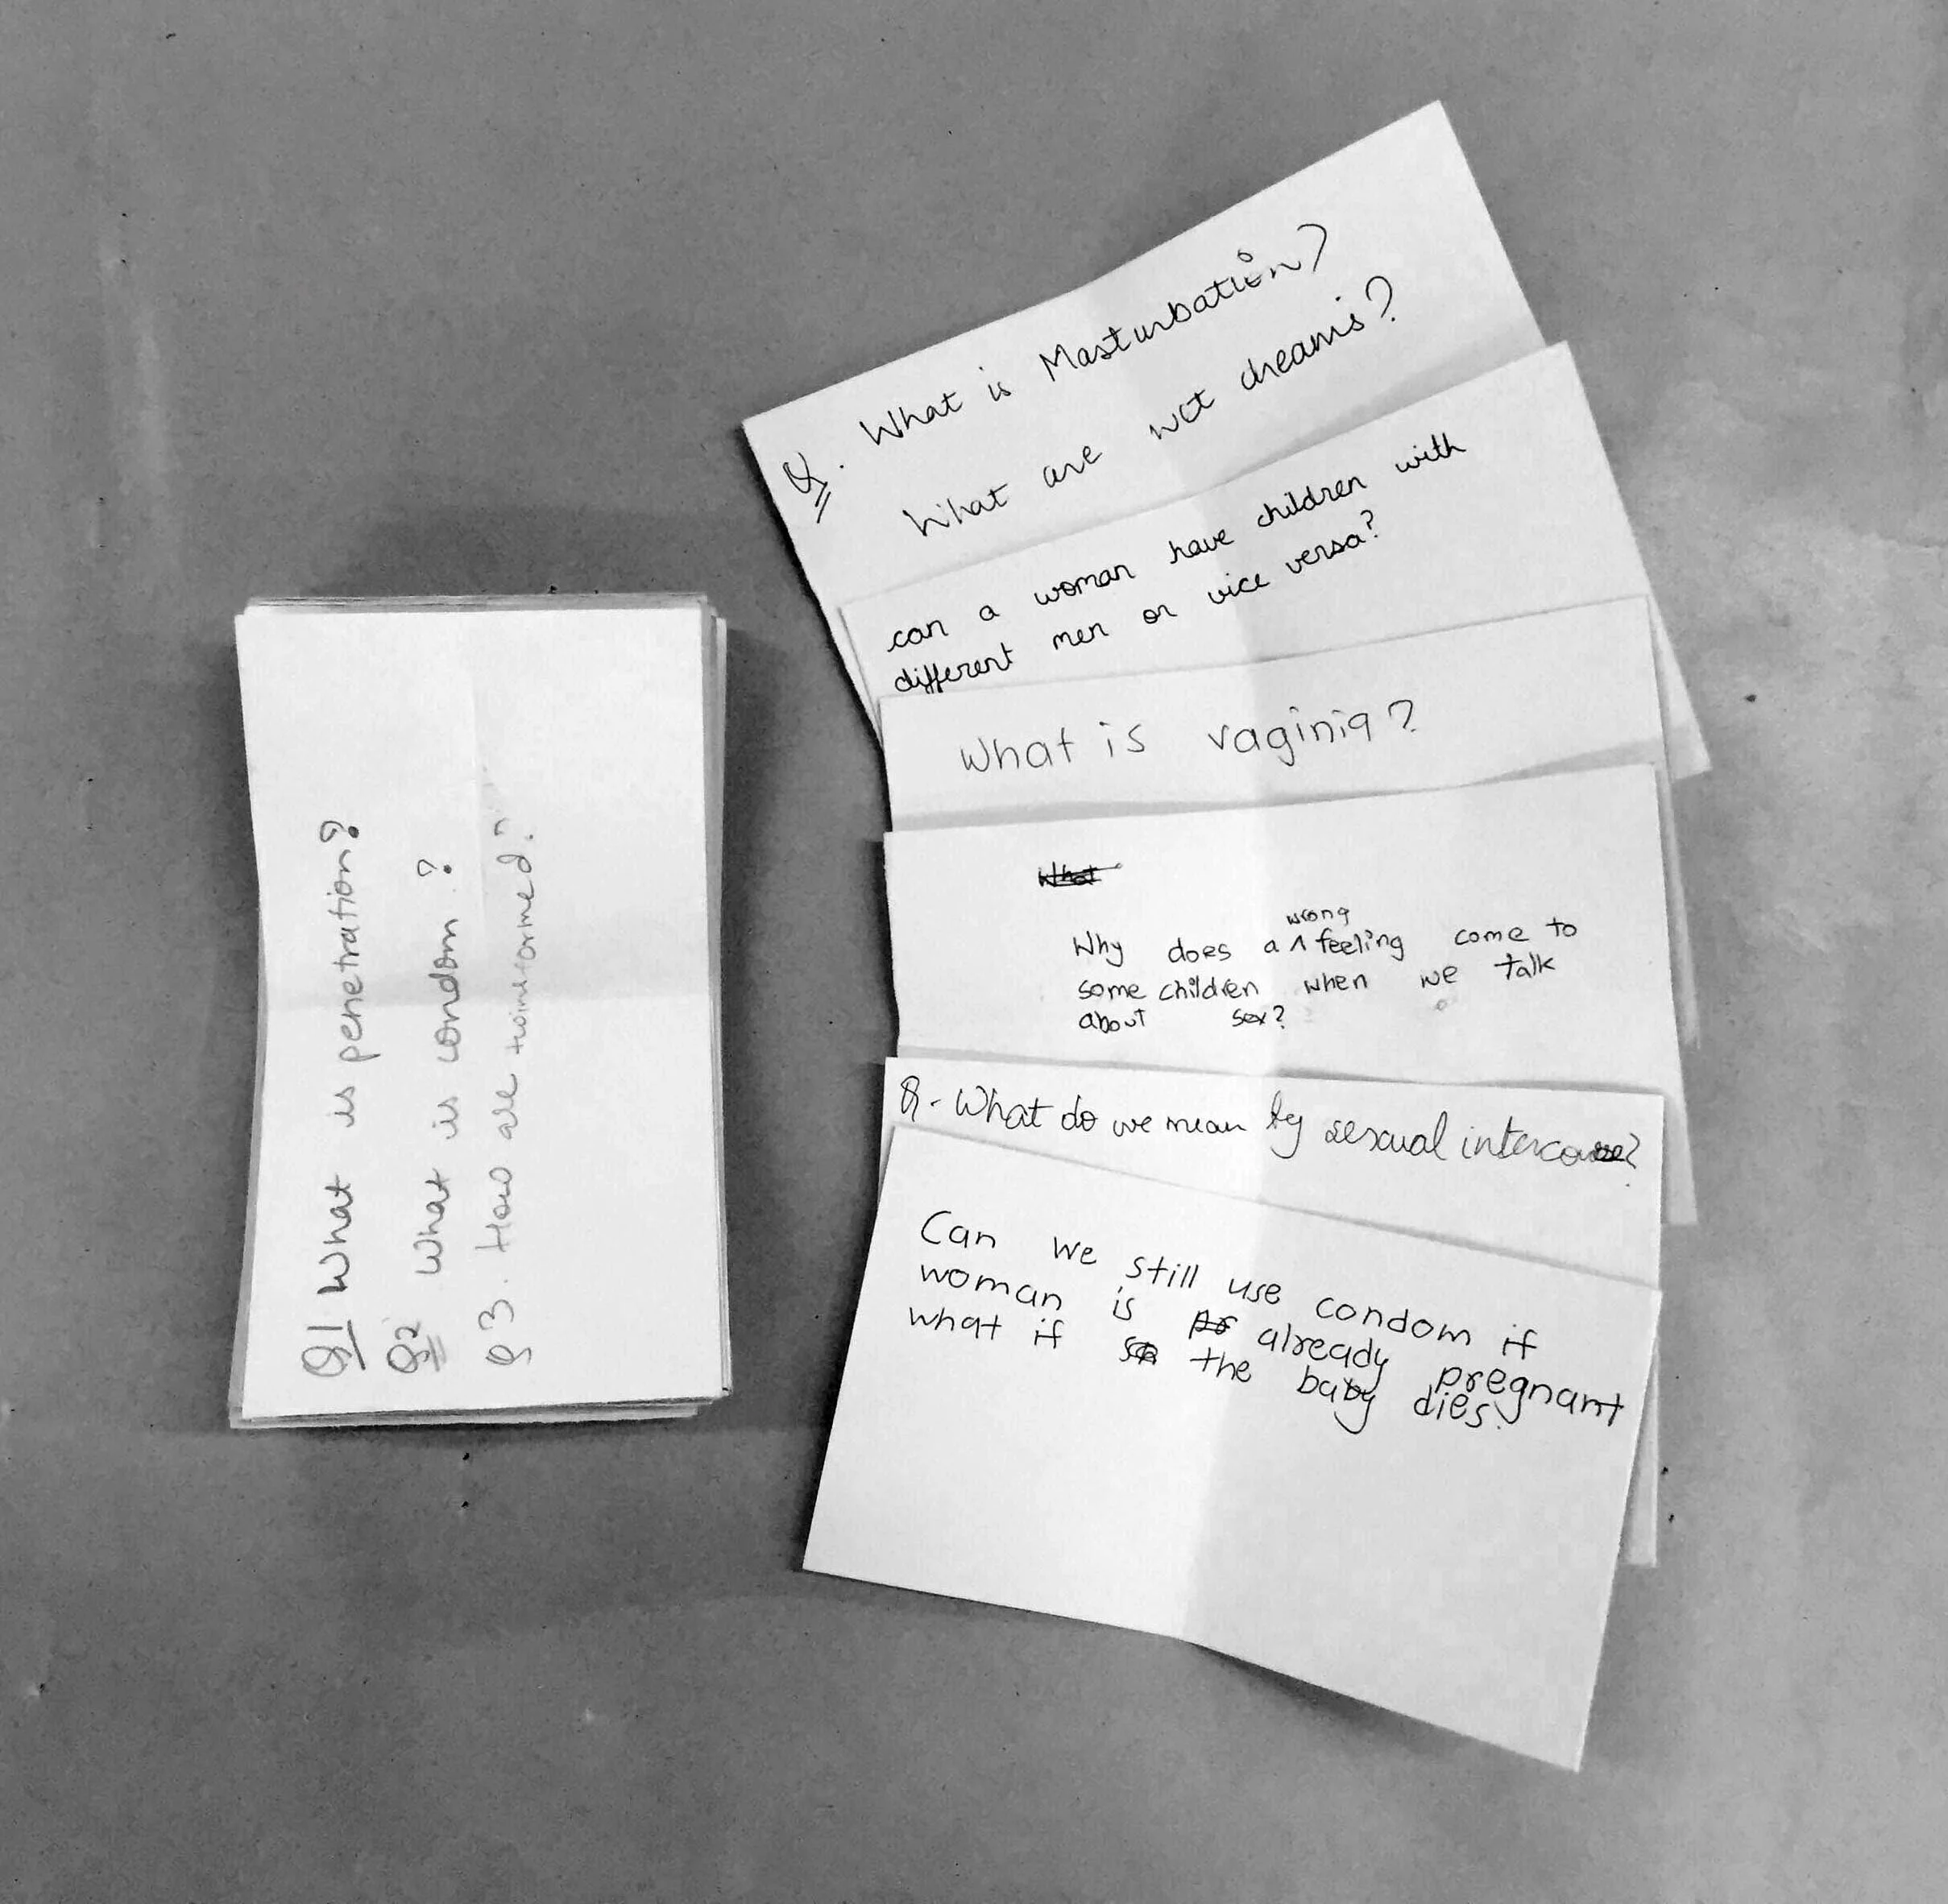 Q1 What is penetration?
Q2 What is condom ?
Q3. How are twins formed?
Q. What is Masturbation?
What are wet dreams?
can a woman have children with
different men or vice versa?
What is vaginia?
What
Why does a wrong feeling come to
some children when we talk
about sex?
Q- What do we mean by sexual intercouse?
Can we still use condom if
woman is already pregnant
what if the baby dies.